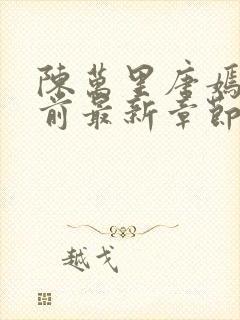 陳萬里唐嫣
前最新章節
越戈